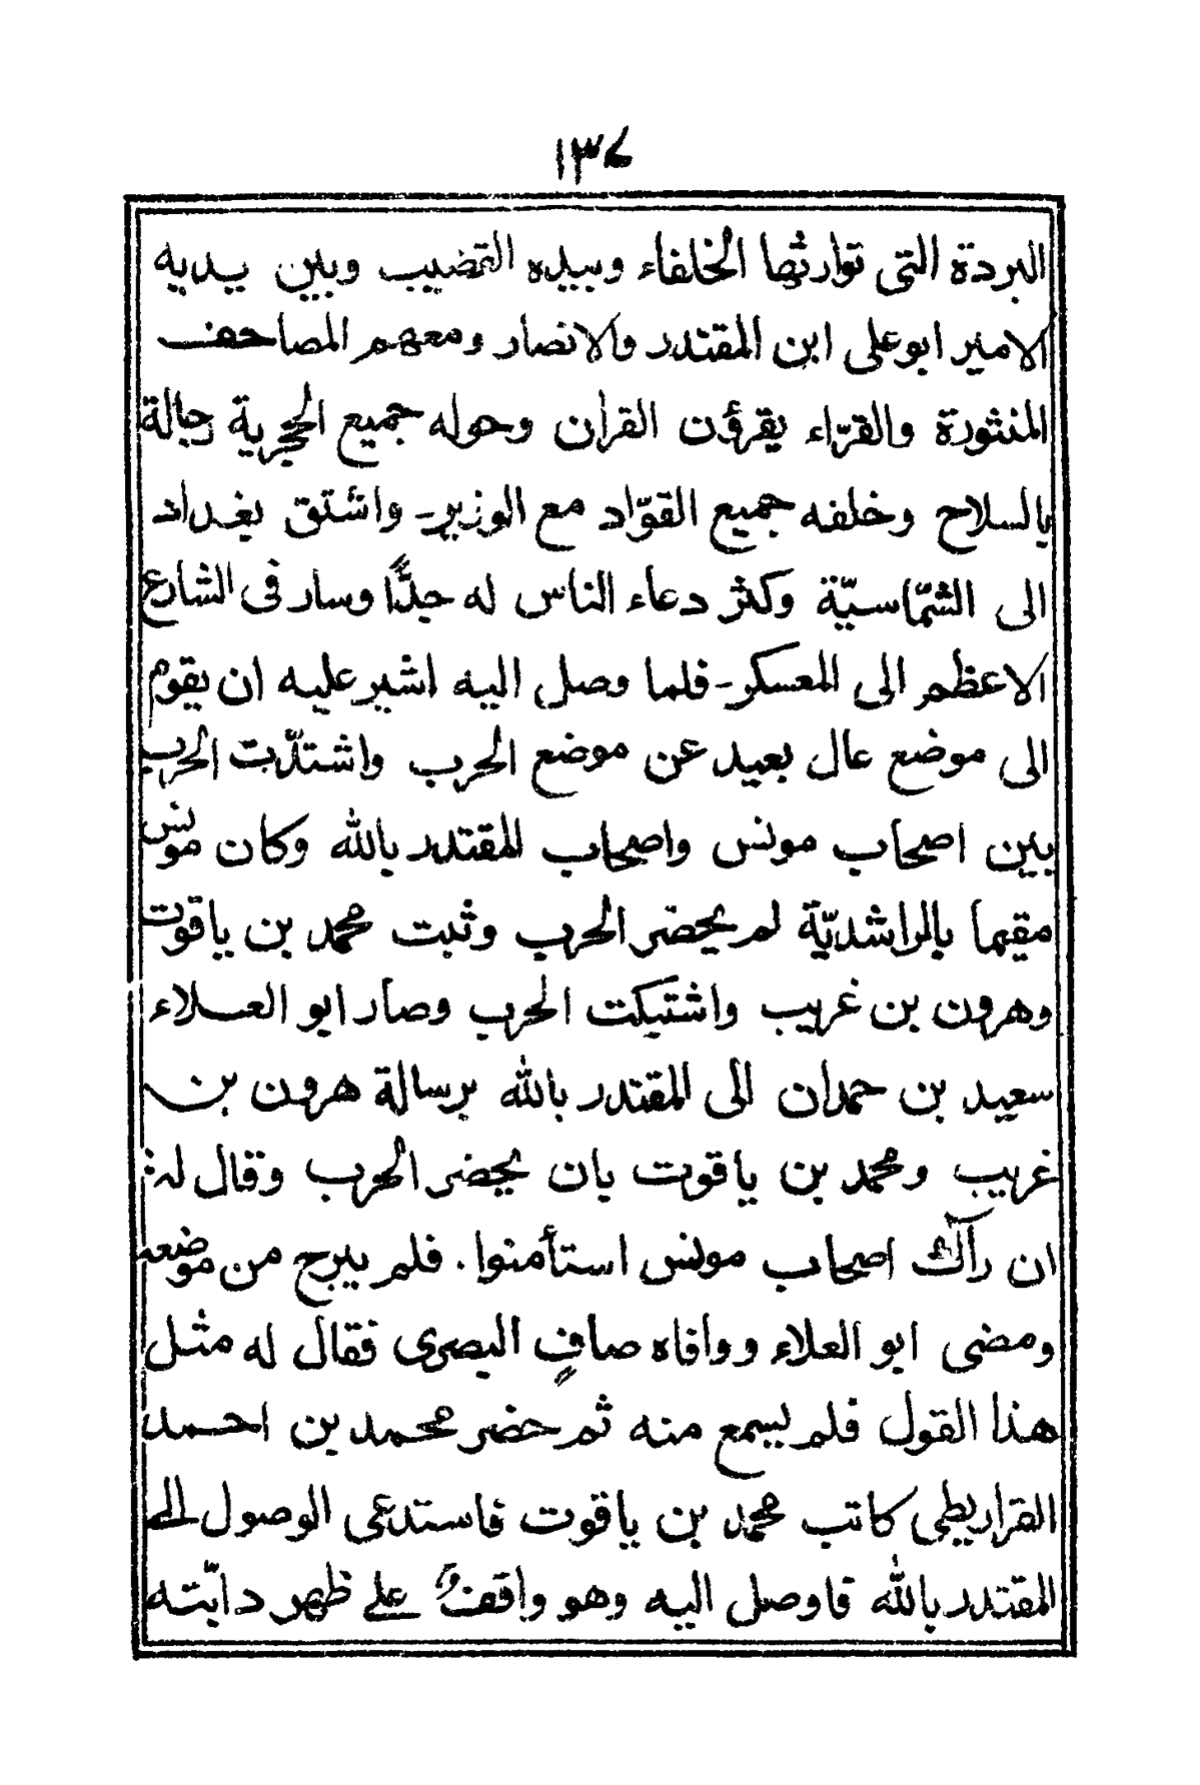 ١٣٤
البردة التى توارثها الخلفاء وبيده القضيب وبين يديه
الامير ابو على ابن المقتدر والانصار ومعهم المصاحف
المنثورة والقرّاء يقرؤن القران وحوله جميع الحجرية رجالة
بالسلاح وخلفه جميع القوّاد مع الوزير- واشتق بغداد
الى الشمّاسيّة وكثر دعاء الناس له جدًّا وسار فى الشارع
الاعظم الى المعسكر- فلما وصل اليه اشير عليه ان يقوم
الى موضع عال بعيد عن موضع الحرب واشتدّت الحرب
بين اصحاب مونس واصحاب المقتدر بالله وكان مونس
مقيما بالراشديّة لم يحضر الحرب وثبت محمد بن ياقوت
وهرون بن غريب واشتبكت الحرب وصار ابو العلاء
سعيد بن حمدان الى المقتدر بالله برسالة هرون بن
غريب ومحمد بن ياقوت بان يحضر الحرب وقال له:
ان رآك اصحاب مونس استأمنوا. فلم يبرح من موضعه
ومضى ابو العلاء ووافاه صافٍ البصرى فقال له مثل
هذا القول فلم يسمع منه ثم حضر محمد بن احمد
القراريطى كاتب محمد بن ياقوت فاستدعى الوصول الى
المقتدر بالله فاوصل اليه وهو واقفٌ على ظهر دابّته